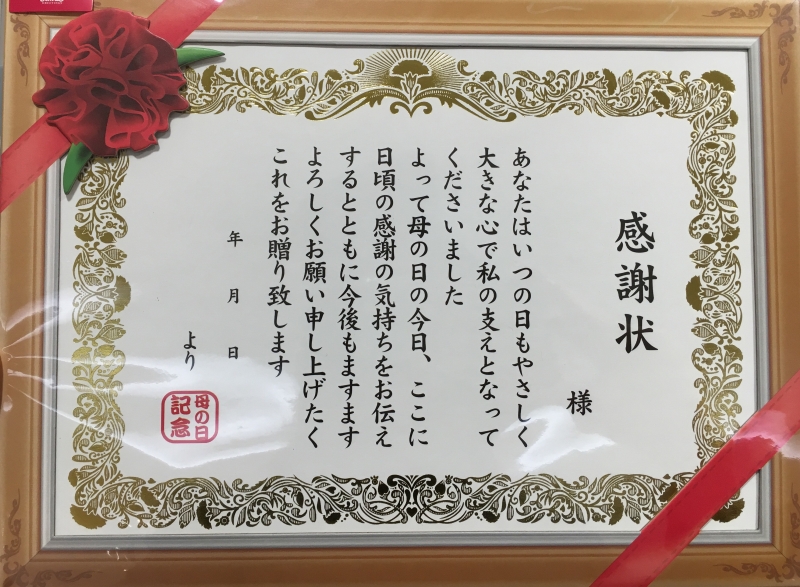 感謝状
様
あなたはいつの日もやさしく
大きな心で私の支えとなって
くださいました
よって母の日の今日、ここに
日頃の感謝の気持ちをお伝え
するとともに今後もますます
よろしくお願い申し上げたく
これをお贈り致します
年月日
より
母の日
記念